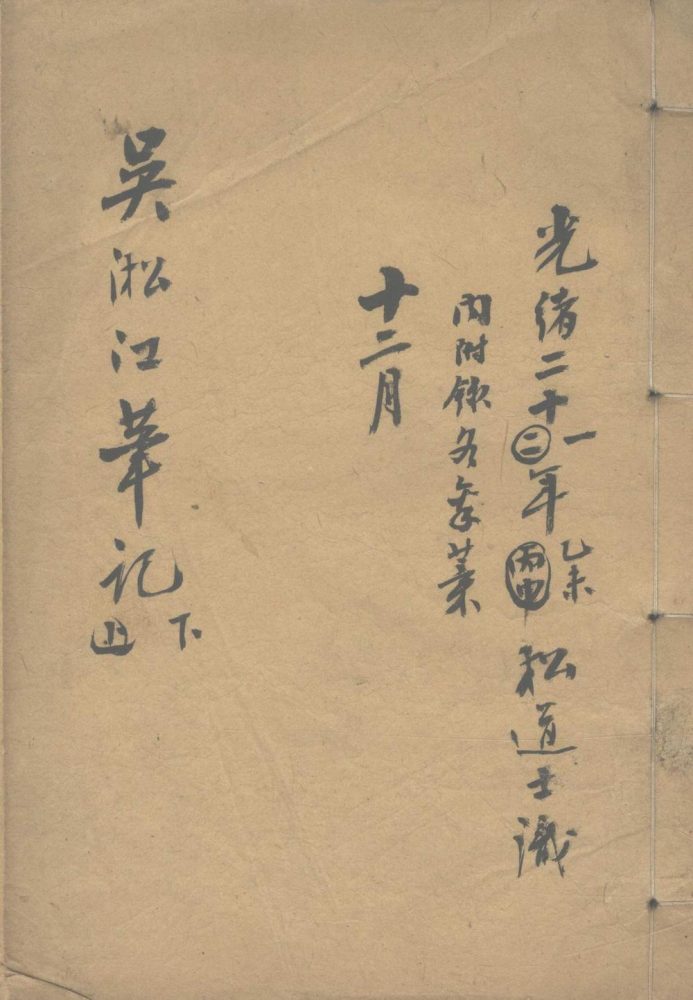 光緒二十二一年丙申乙未 松道士識
內附錄各藁
十二月
吳淞江筆記 上下